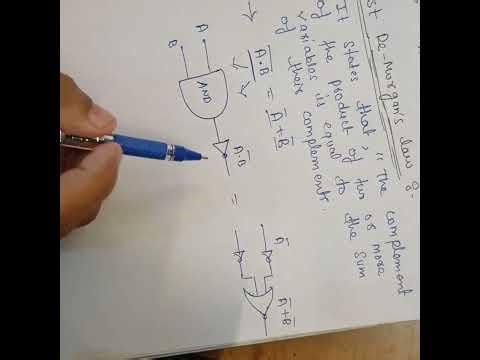 st De-Morgan's law :-
It states that, "The complement
of the product of two or more
variables is equal to the sum
of their complements.
A̅·̅B̅ = A̅+B̅
A
B
AND
A̅·̅B̅
=
A̅
A̅+B̅